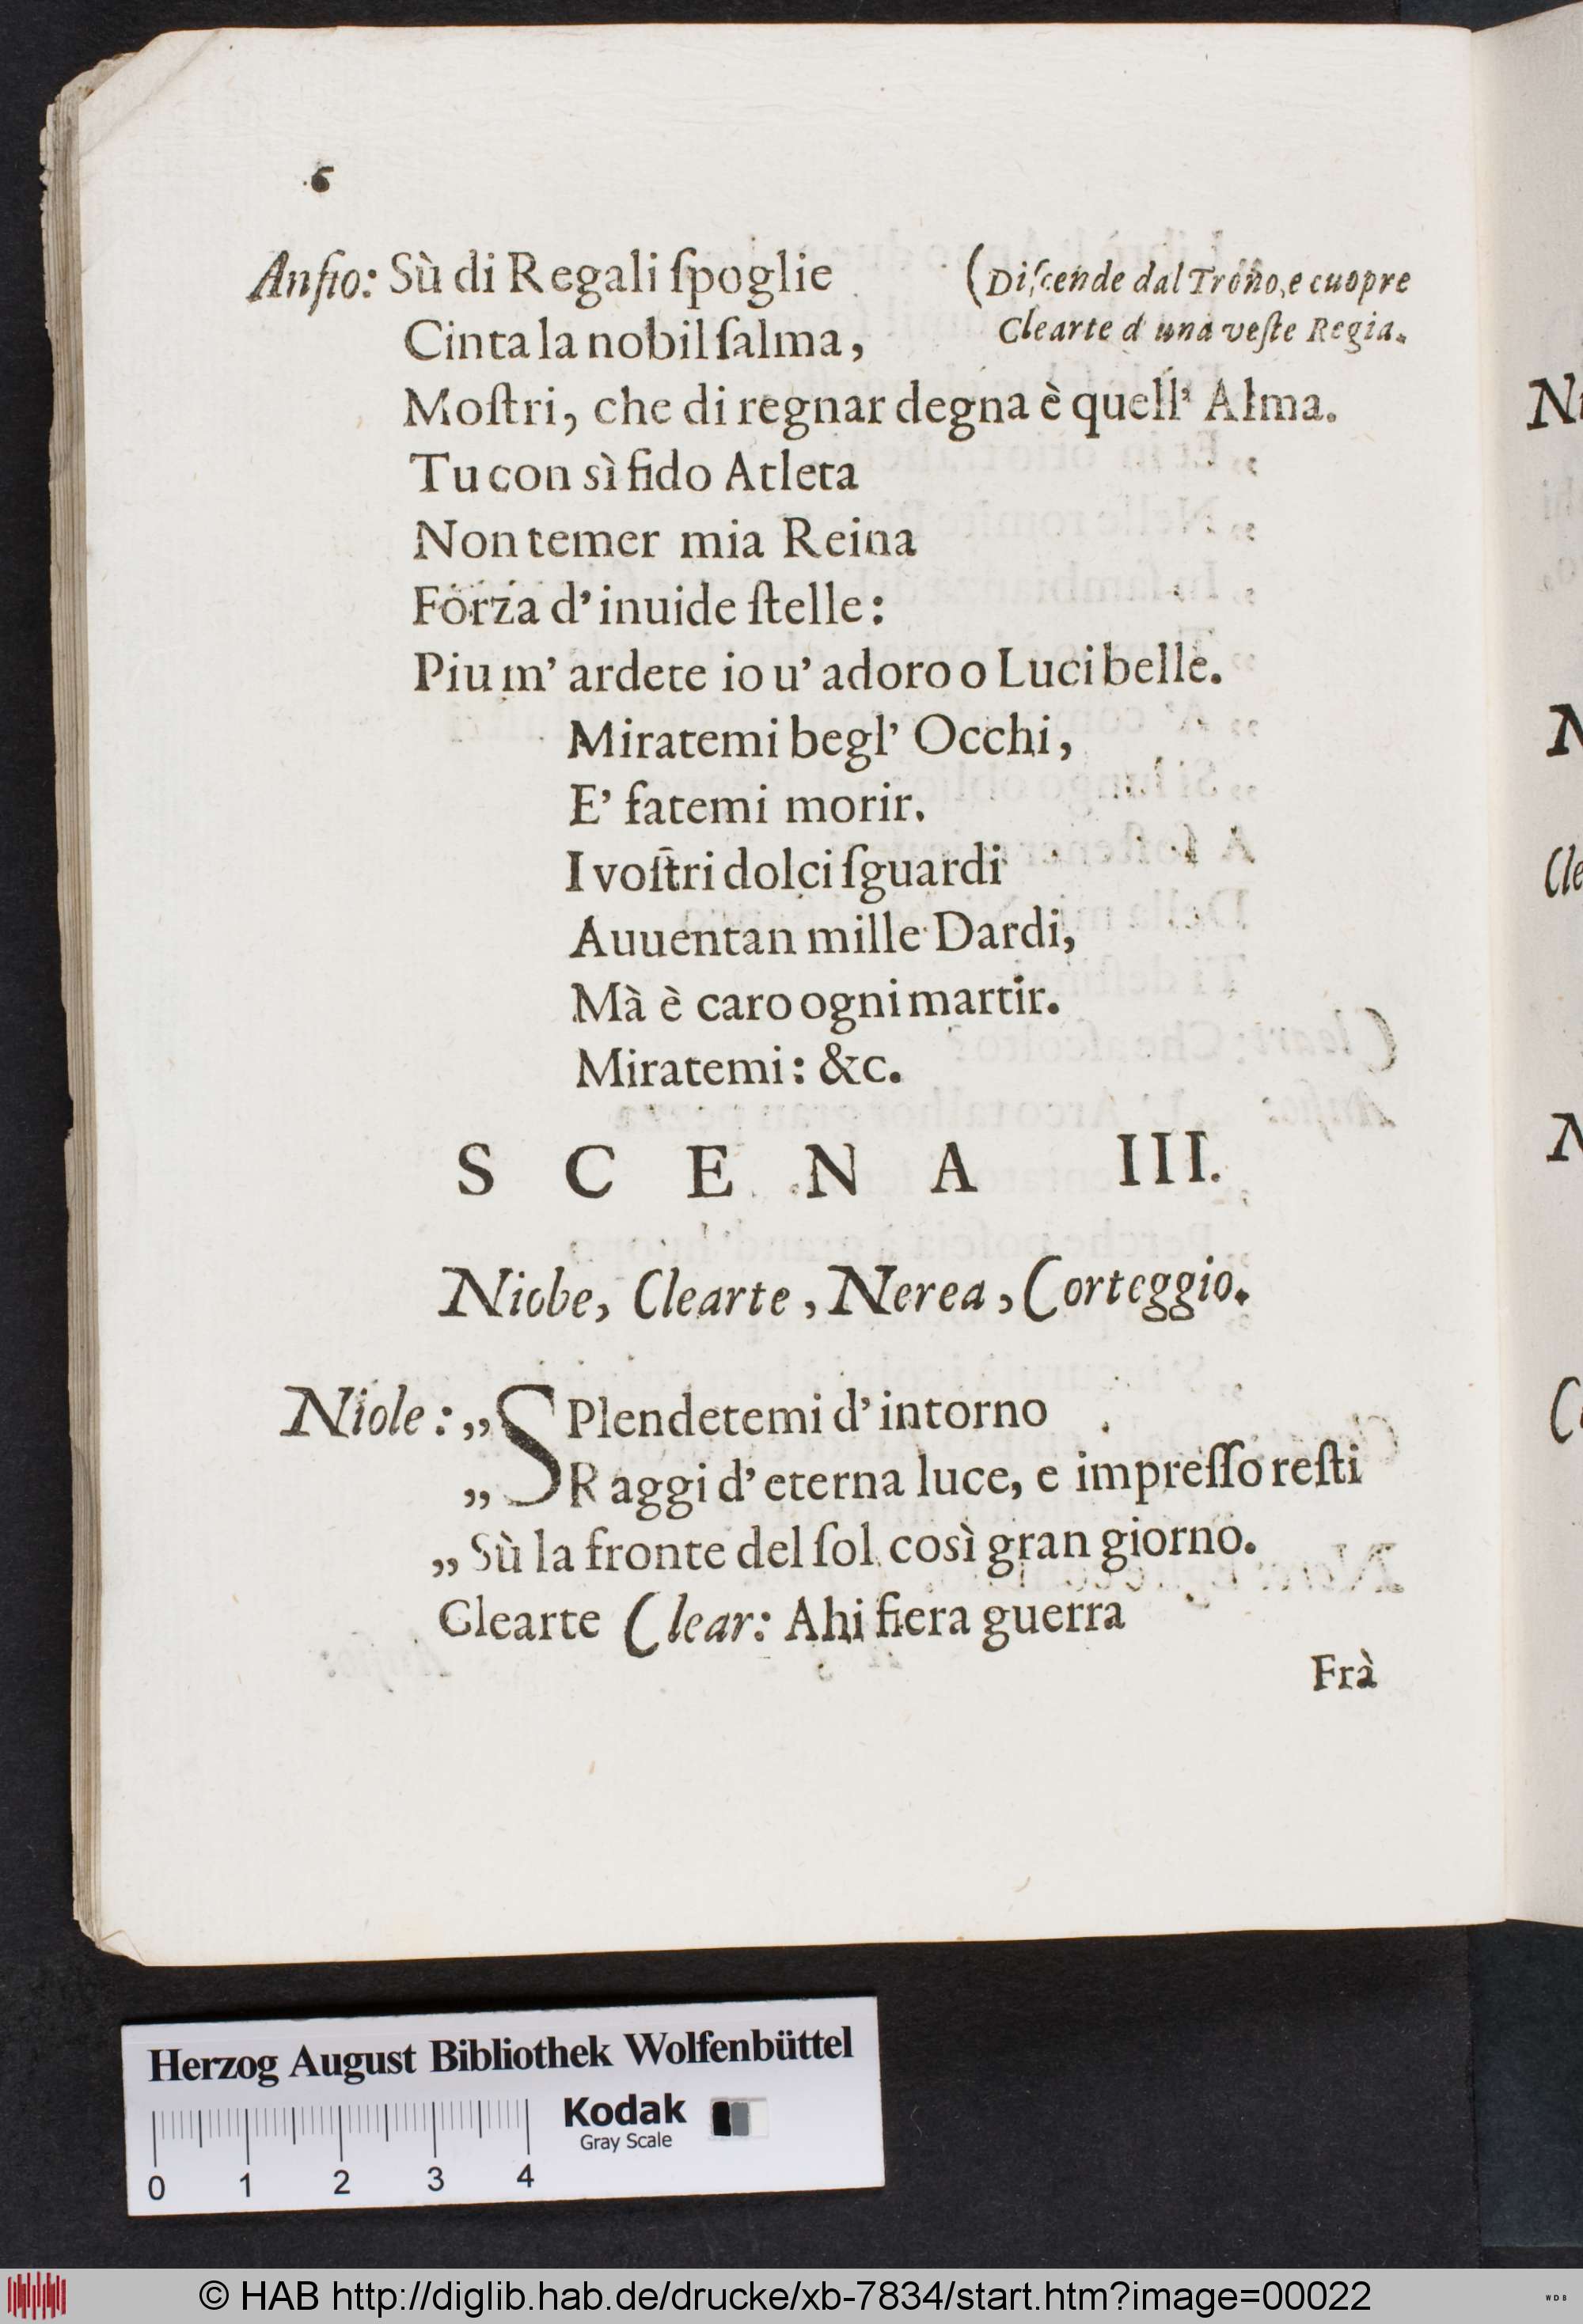 6
Anfio: Sù di Regali ſpoglie (Diſcende dal Trono, e cuopre
Clearte d una veſte Regia.
Cinta la nobil ſalma,
Moſtri, che di regnar degna è quell' Alma.
Tu con sì fido Atleta
Non temer mia Reina
Forza d' inuide ſtelle:
Piu m' ardete io u' adoro o Luci belle.
Miratemi begl' Occhi,
E' fatemi morir.
I voſtri dolci ſguardi
Auuentan mille Dardi,
Mà è caro ogni martir.
Miratemi: &c.
S C E N A III.
Niobe, Clearte, Nerea, Corteggio.
Niole: „ SPlendetemi d' intorno
„ Raggi d' eterna luce, e impreſſo reſti
„ Sù la fronte del ſol così gran giorno.
Glearte Clear: Ahi fiera guerra
Frà
Ni
N
Cle
N
C
Herzog August Bibliothek Wolfenbüttel
Kodak
Gray Scale
0 1 2 3 4
© HAB http://diglib.hab.de/drucke/xb-7834/start.htm?image=00022
WDB